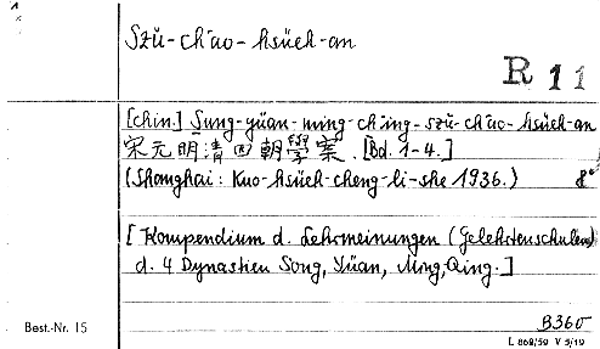 Szŭ-ch'ao-hsüeh-an
R 11
[chin.] Sung-yüan-ming-ch'ing-szŭ-ch'ao-hsüeh-an
宋元明清四朝學案. [Bd. 1-4.]
(Shanghai: Kuo-hsüeh-cheng-li-she 1936.) 8°
[Kompendium d. Lehrmeinungen (Gelehrtenschulen)
d. 4 Dynastien Song, Yüan, Ming, Qing.]
Best.-Nr. 15
B360
L 868/59 V 5/19